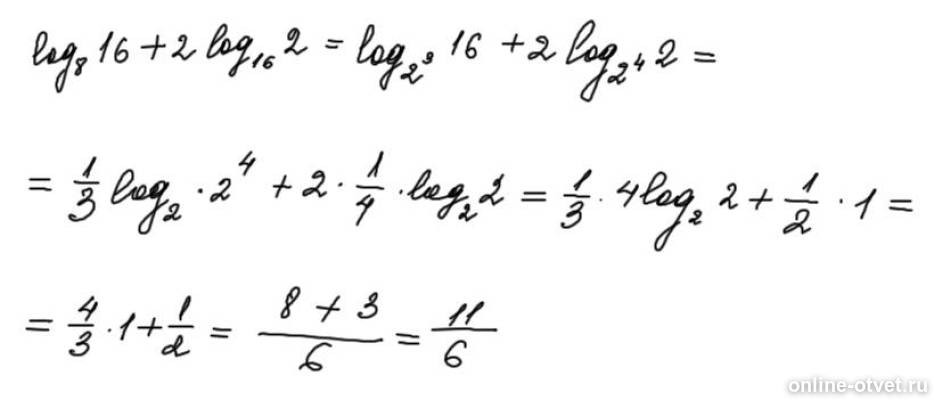 log₈ 16 + 2 log₁₆ 2 = log₂³ 16 + 2 log₂⁴ 2 =
= 1/3 log₂ · 2⁴ + 2 · 1/4 · log₂ 2 = 1/3 · 4 log₂ 2 + 1/2 · 1 =
= 4/3 · 1 + 1/2 = (8 + 3)/6 = 11/6
online-otvet.ru